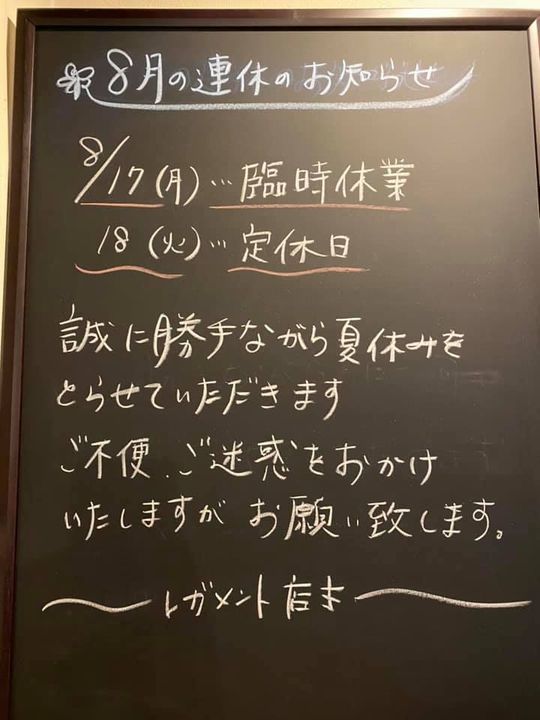 8月の連休のお知らせ
8/17(月)…臨時休業
18(火)…定休日
誠に勝手ながら夏休みを
とらせていただきます
ご不便、ご迷惑をおかけ
いたしますが お願い致します。
レガメント店主